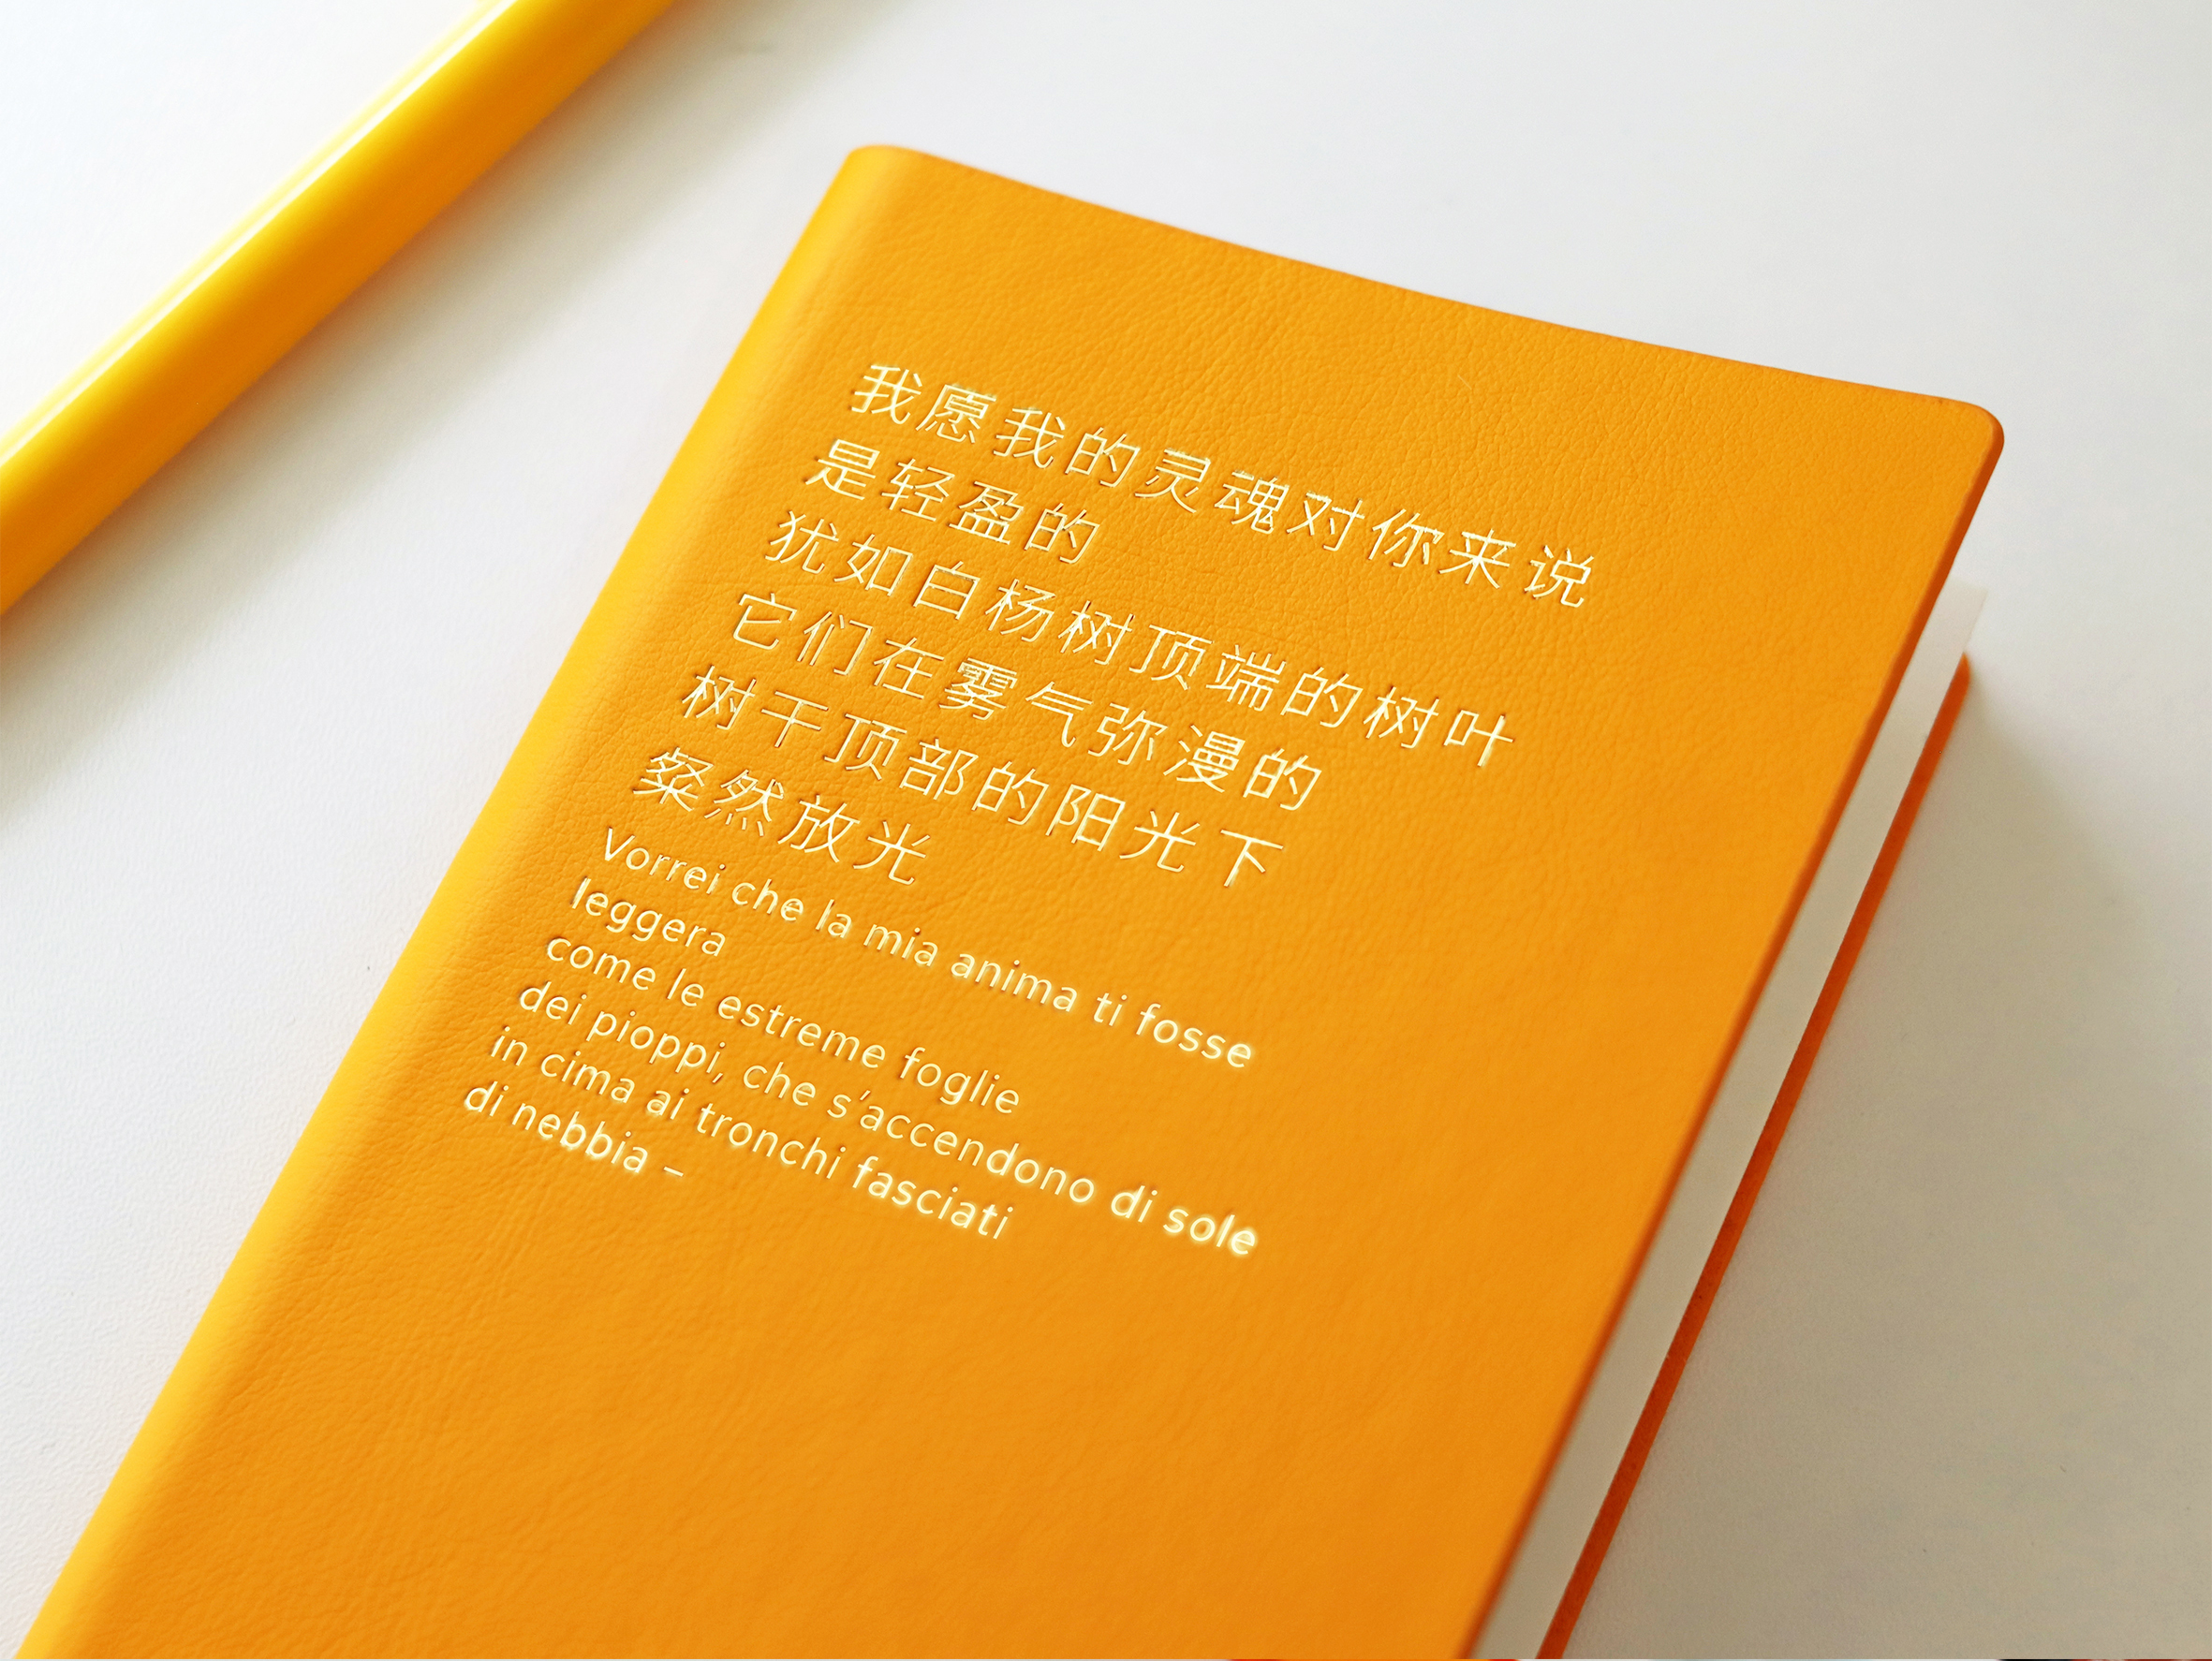 我愿我的灵魂对你来说
是轻盈的
犹如白杨树顶端的树叶
它们在雾气弥漫的
树干顶部的阳光下
粲然放光
Vorrei che la mia anima ti fosse
leggera
come le estreme foglie
dei pioppi, che s'accendono di sole
in cima ai tronchi fasciati
di nebbia –